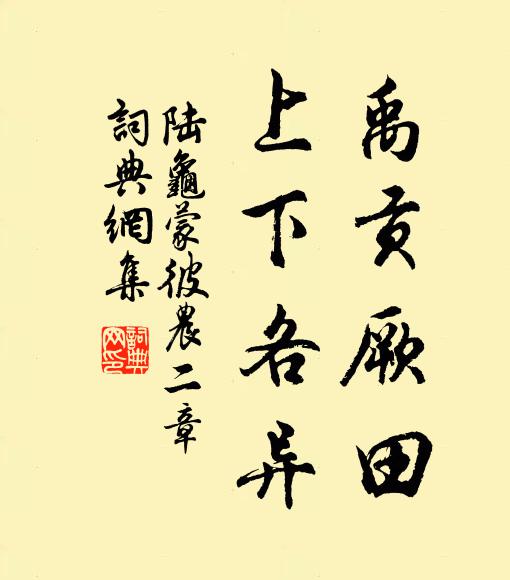 禹贡厥田
上下各异
陆龜蒙彼農二章
詞典網集
詞典網印